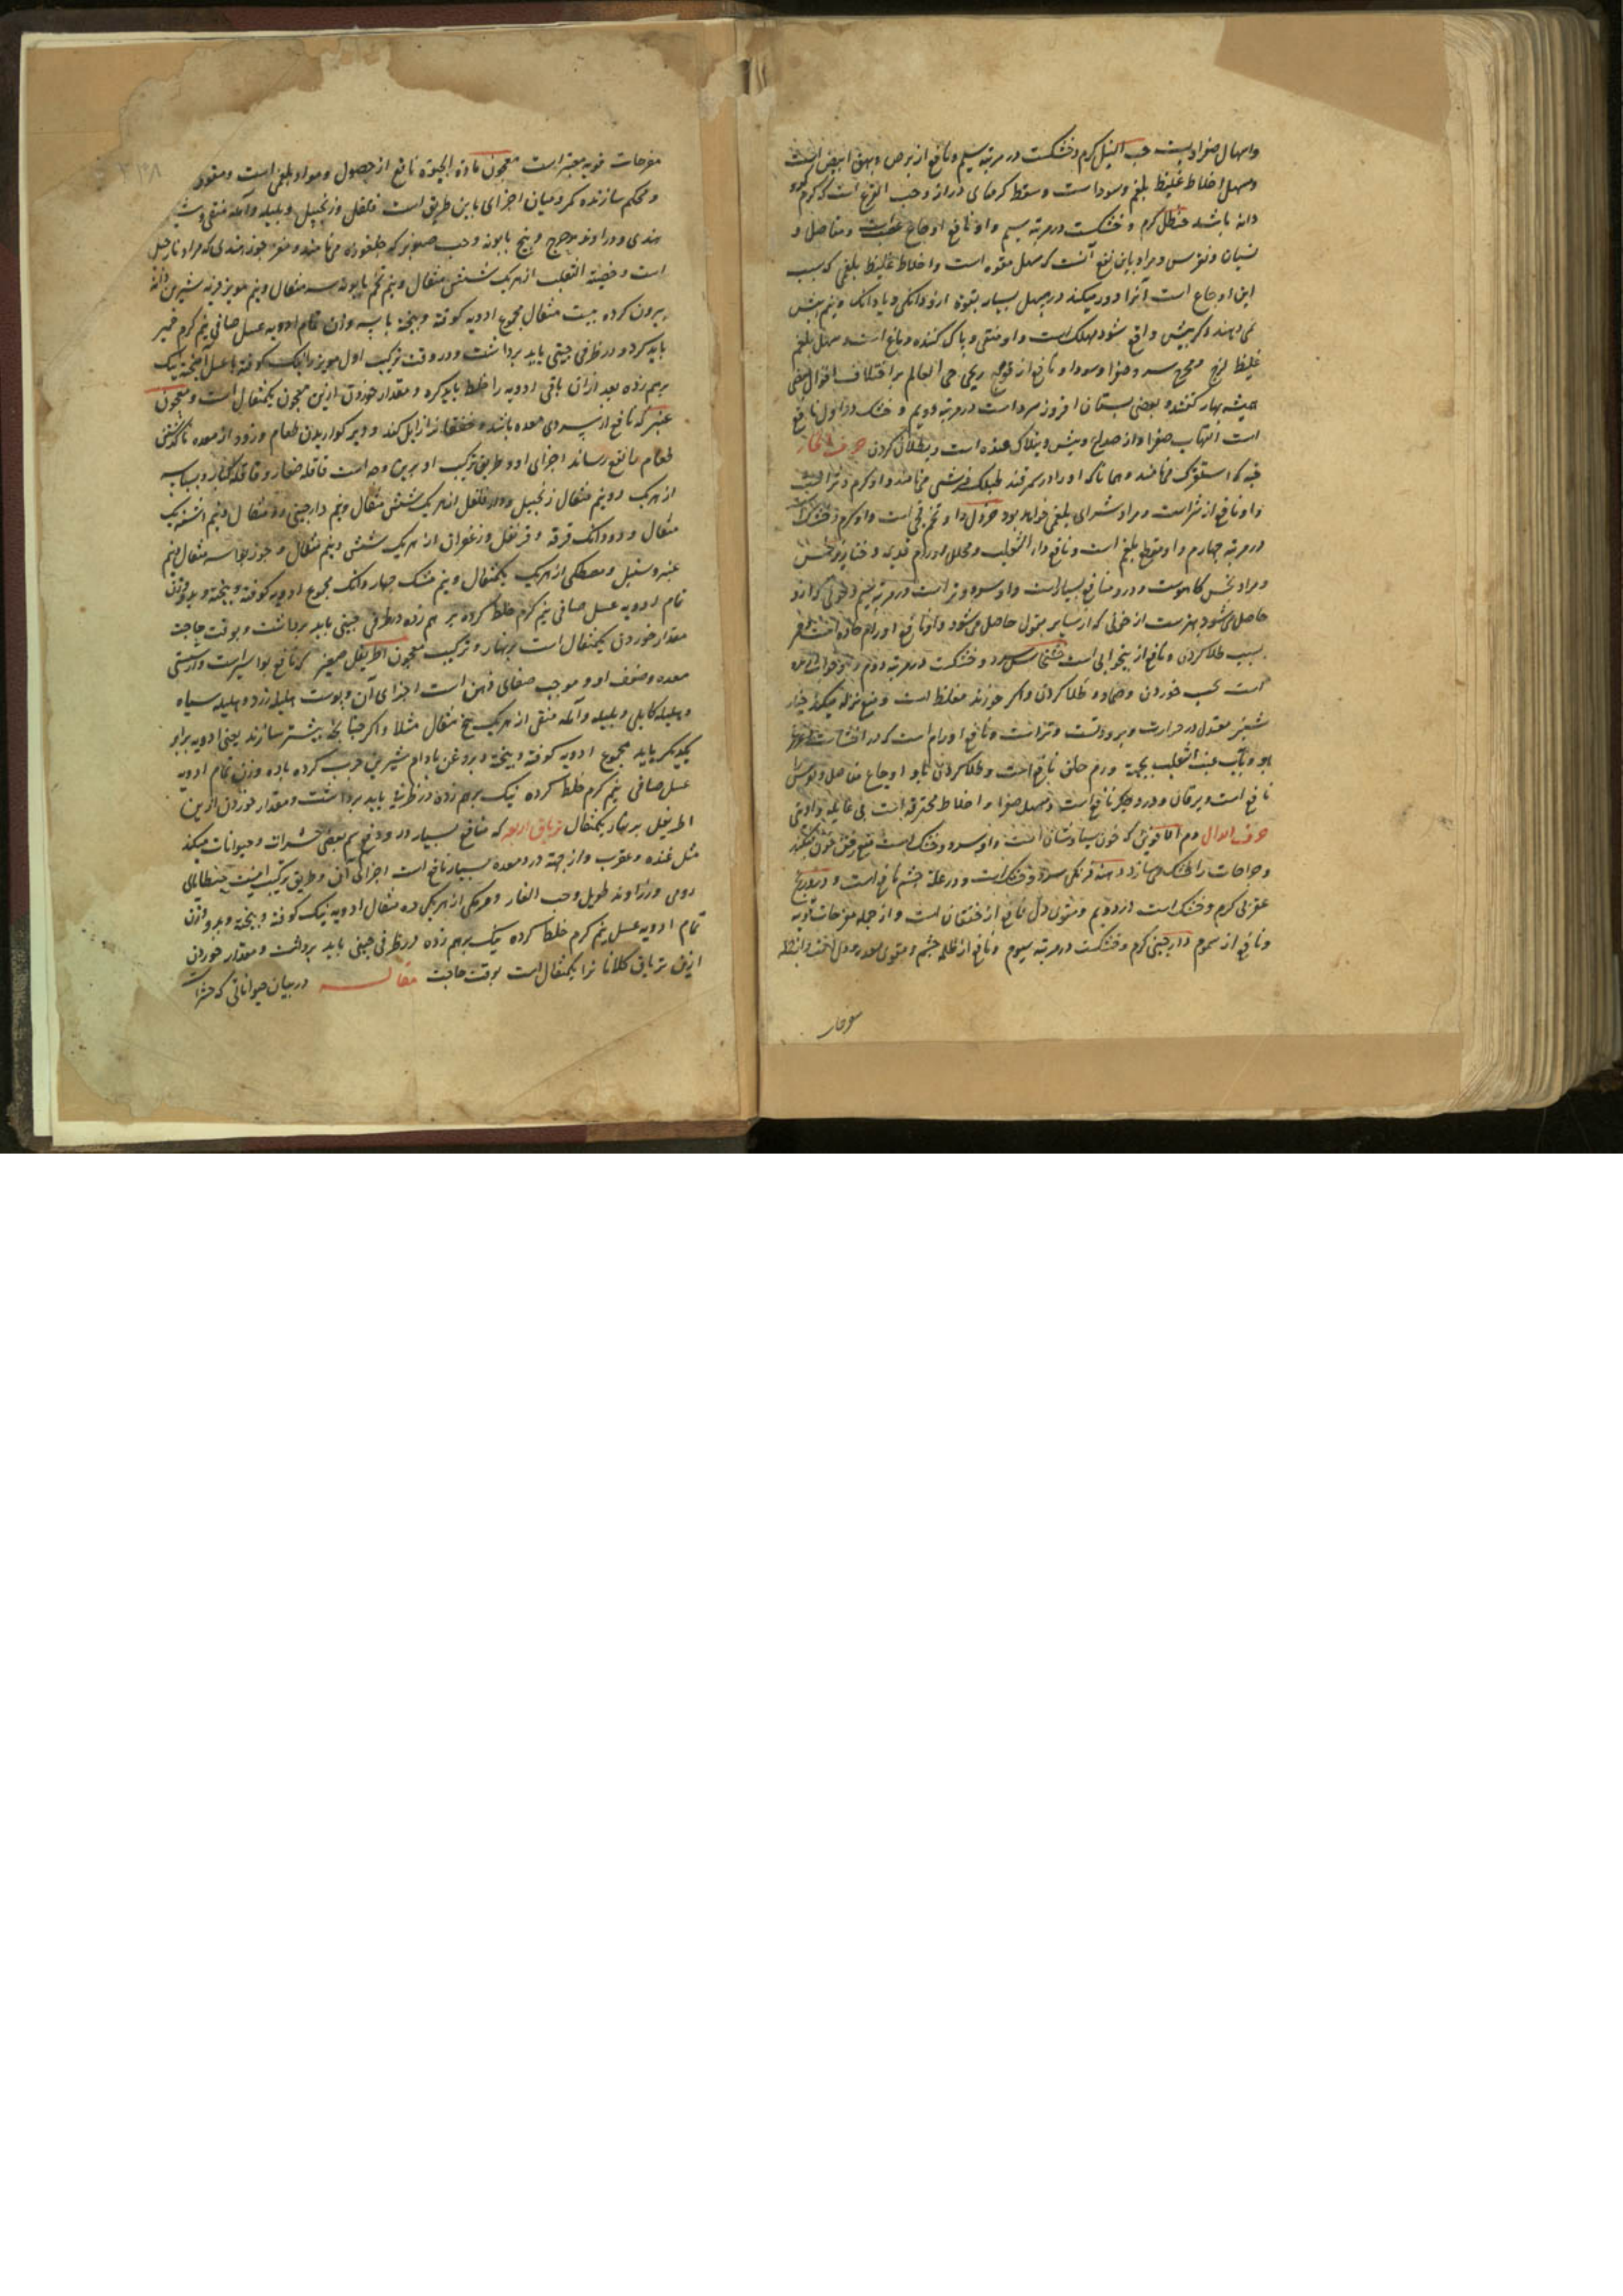 واسهال صفراویست حب النیل گرم و خشکست در مرتبه سیم و نافع از برص و بهق ابیض است
ومسهل اخلاط غلیظ بلغم و سودا است و مسقط کرمهای دراز و حب القرع است که کرم کدو
دانه باشد حنظل گرم و خشکست در مرتبه سیم و او نافع اوجاع عصب است و مفاصل و
نسیان و نقرس و مراد باین نفع آنست که مسهل بقوه است و اخلاط غلیظ بلغمی که سبب
این اوجاع است آنرا دور میکند در مسهل بسیار بقوة از دو دانکی و یا دانک و نیم بیش
نمی دهند و کر بیش واقع شود مهلک است و او منقی و پاک کننده دماغ است و مسهل بلغم
غلیظ لزج سر و صفرا و سودا و نافع از قولنج ریحی حی العالم بر اختلاف اقوال بعضی
همیشه بهار گفتند و بعضی بستان افروز سرد است در مرتبه دویم و خشک در اول نافع
است التهاب صفرا و از صداع و بطلا کردن حرف الخاء
خبه که او را در سمرقند میخوانند و او گرم و تر است
و او نافع از شراست و مراد شرای بلغمی خواهد بود خردل دارو تخم است و او گرم و خشک است
در مرتبه چهارم و او مقطع بلغم است و نافع داء الثعلب و محلل اورام و خنازیر خس
و مراد بخس کاهوست و در و منافع بسیار است و او سرد و تر است در مرتبه سیم و خونی که از و
حاصل می شود بهتر ست از خونی که از سایر بقول حاصل می شود و او نافع اورام حاره است
بسبب طلا کردن و نافع از بیخوابی است خشخاش سرد و خشکست در مرتبه دوم
است بحسب خوردن و ضماد و طلا کردن و اگر خورند مغلظ است و منع نزله میکند خیار
شنبر معتدل در حرارت و برودتست و تر است و نافع اورام است که در احشا است
بآب عنب الثعلب بجهة ورم حلق نافع است و طلا کردن باو اوجاع مفاصل و نقرس را
نافع است و یرقان و درد جگر نافع است و مسهل صفرا و اخلاط محترقه است بی غایله و اذیتی
حرف الدال دم الاخوین که خون سیاوشان است و او سرد و خشک است منع رفتن خون میکند
و جراحات را خشک می سازد سرد و خشک است و در علة چشم نافع است و درونج
عقربی گرم و خشک است در دویم و مقوی دل نافع از خفقان است و از جمله مفرحات قویه
و نافع از سموم دارچینی گرم و خشکست در مرتبه سیوم و نافع از ظلمه چشم و مقوی معده و دل است و از جمله
مفرحات
مفرحات قویه معتبر است معجون مادة الحیوة نافع از حصول و مواد بلغمی است و مقوی
و محکم سازنده کمر و میان اجزای باین طریق است فلفل و زنجبیل و بلیله و آمله منقی و شیطرج
هندی و زراوند مدحرج و بیخ بابونه و حب صنوبر که چلغوزه می نامند و مغز جوز هندی که مراد نارجیل
است و خصیة الثعلب از هر یک شش مثقال و نیم تخم بابونه سه مثقال و نیم مویز شیرین دانه
بیرون کرده بیست مثقال مجموع ادویه کوفته و بیخته با سه وزن تمام ادویه عسل صافی نیم گرم خمیر
باید کرد و در ظرفی چینی باید برداشت و در وقت ترکیب اول مویز را نیک کوفته با عسل آمیخته نیک
برهم زده بعد ازان باقی ادویه را خلط باید کرد و مقدار خوردن ازین معجون یکمثقال است و معجون
عنبر که نافع از سردی معده باشد و خفقان زایل کند و دیر گوارییدن طعام و زود از معده ناگذشتن
طعام را نفع رساند اجزای او و طریق ترکیب او برین وجه است قاقله صغار و قاقله کبار و بسباسه
از هر یک دو نیم مثقال زنجبیل و دار فلفل از هر یک شش مثقال و نیم دارچینی دو مثقال و نیم اشنه یک
مثقال و دو دانک قرفه و قرنفل و زعفران از هر یک شش و نیم مثقال و جوز بوا سه مثقال و نیم
عنبر و سنبل و مصطکی از هر یک یکمثقال و نیم مشک چهار دانک مجموع ادویه کوفته و بیخته و بدو وزن
تمام ادویه عسل صافی نیم گرم خلط کرده بر هم زده در ظرفی چینی باید برداشت و بوقت حاجت
مقدار خوردن یکمثقال است بر نهار و ترکیب معجون اطریفل صغیر که نافع بواسیر است و از سستی
معده و ضعف او و موجب صفای ذهن است اجزای آن پوست هلیله زرد و هلیله سیاه
و هلیله کابلی و بلیله و آمله منقی از هر یک پنج مثقال مثلا و اگر چنانچه بیشتر سازند یعنی ادویه برابر
یکدیگر باید مجموع ادویه کوفته و بیخته و بروغن بادام شیرین چرب کرده باده وزن تمام ادویه
عسل صافی نیم گرم خلط کرده نیک برهم زده در ظرفی باید برداشت و مقدار خوردن ازین
اطریفل بر نهار یکمثقال تریاق اربعه که منافع بسیار دارد و دفع سم بعضی حشرات و حیوانات میکند
مثل غنده و عقرب و از جهة درد معده بسیار نافع است اجزای آن و طریق ترکیب اینست جنطیانای
رومی و زراوند طویل و حب الغار و مر مکی از هر یکی ده مثقال ادویه نیک کوفته و بیخته و بدو وزن
تمام ادویه عسل نیم گرم خلط کرده نیک برهم زده در ظرفی چینی باید برداشت و مقدار خوردن
ازین تریاق کلانانرا یکمثقال است بوقت حاجت مقاله در بیان حیواناتی که حشرات